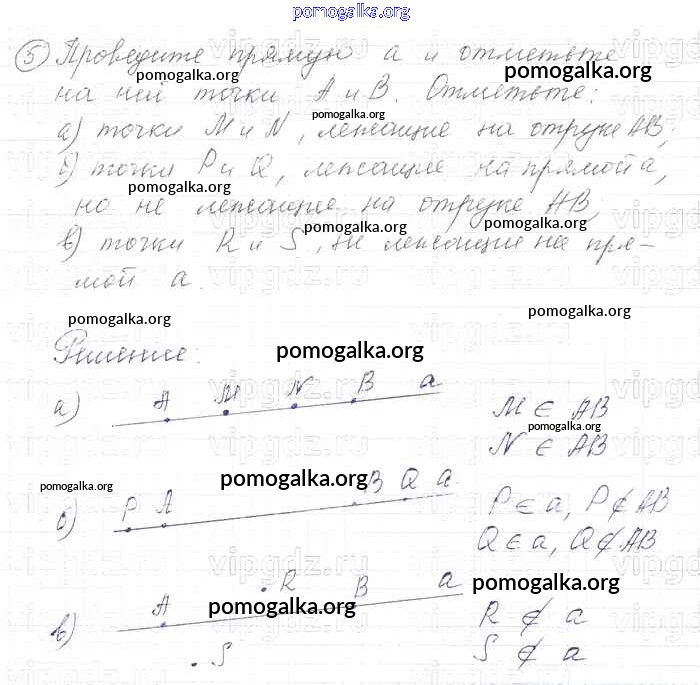 pomogalka.org
5 Проведите прямую a и отметьте
на ней точки A и B. Отметьте:
а) точки M и N, лежащие на отрезке AB;
б) точки P и Q, лежащие на прямой a,
но не лежащие на отрезке AB;
в) точки R и S, не лежащие на пря-
мой a.
pomogalka.org
pomogalka.org
pomogalka.org
pomogalka.org
pomogalka.org
pomogalka.org
pomogalka.org
Решение:
pomogalka.org
а) A M N B a
M ∈ AB
pomogalka.org
N ∈ AB
pomogalka.org
pomogalka.org
б) P A B Q a
P ∈ a, P ∉ AB
Q ∈ a, Q ∉ AB
pomogalka.org
pomogalka.org
в) A R B a
S
R ∉ a
S ∉ a
vipgdz.ru